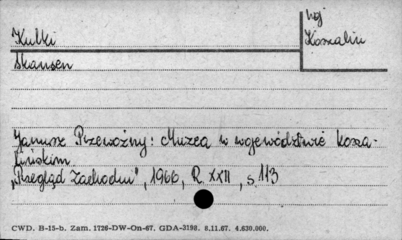 Kulki
woj
Koszalin
Skansen
Janusz Przewoźny: Muzea w województwie kosza-
lińskim
„Przegląd Zachodni", 1966, R. XXII, s. 113
CWD. B-15-b. Zam. 1726-DW-On-67. GDA-3198. 8.11.67. 4.630.000.